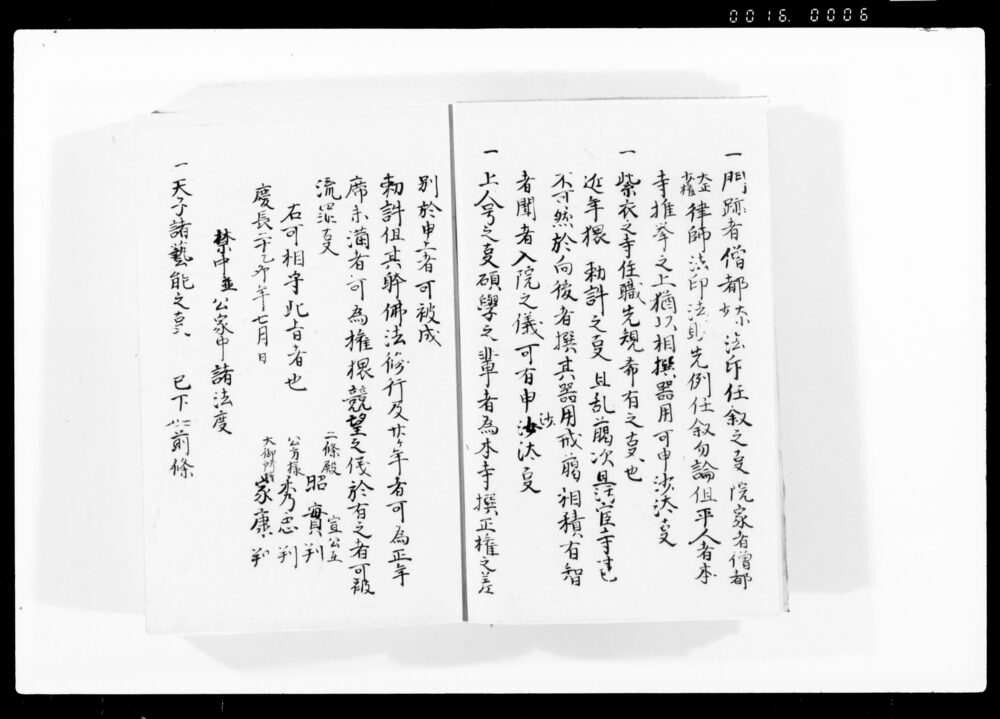 0016. 0006
一 門跡者僧都大小法印任叙之事院家者僧都
大正少権律師法印法眼先例任叙勿論但平人者本
寺推挙之上猶以相撰器用可申沙汰事
一 紫衣之寺住職先規希有之事也
近年猥 勅許之事且乱﨟次且汚官寺甚
不可然於向後者撰其器用戒﨟相積有智
者聞者入院之儀可有申沙汰事
一 上人号之事碩學之輩者為本寺撰正権之差
別於申上者可被成
勅許但其躰佛法修行及廿ヶ年者可為正年
席未満者可為権猥競望之儀於有之者可被
流罪事
右可相守此旨者也
慶長二十乙卯年七月日
二條殿 昭實判 宣公互
公方様 秀忠判
大御所様 家康判
禁中並公家中諸法度
一 天子諸藝能之事 已下如前條